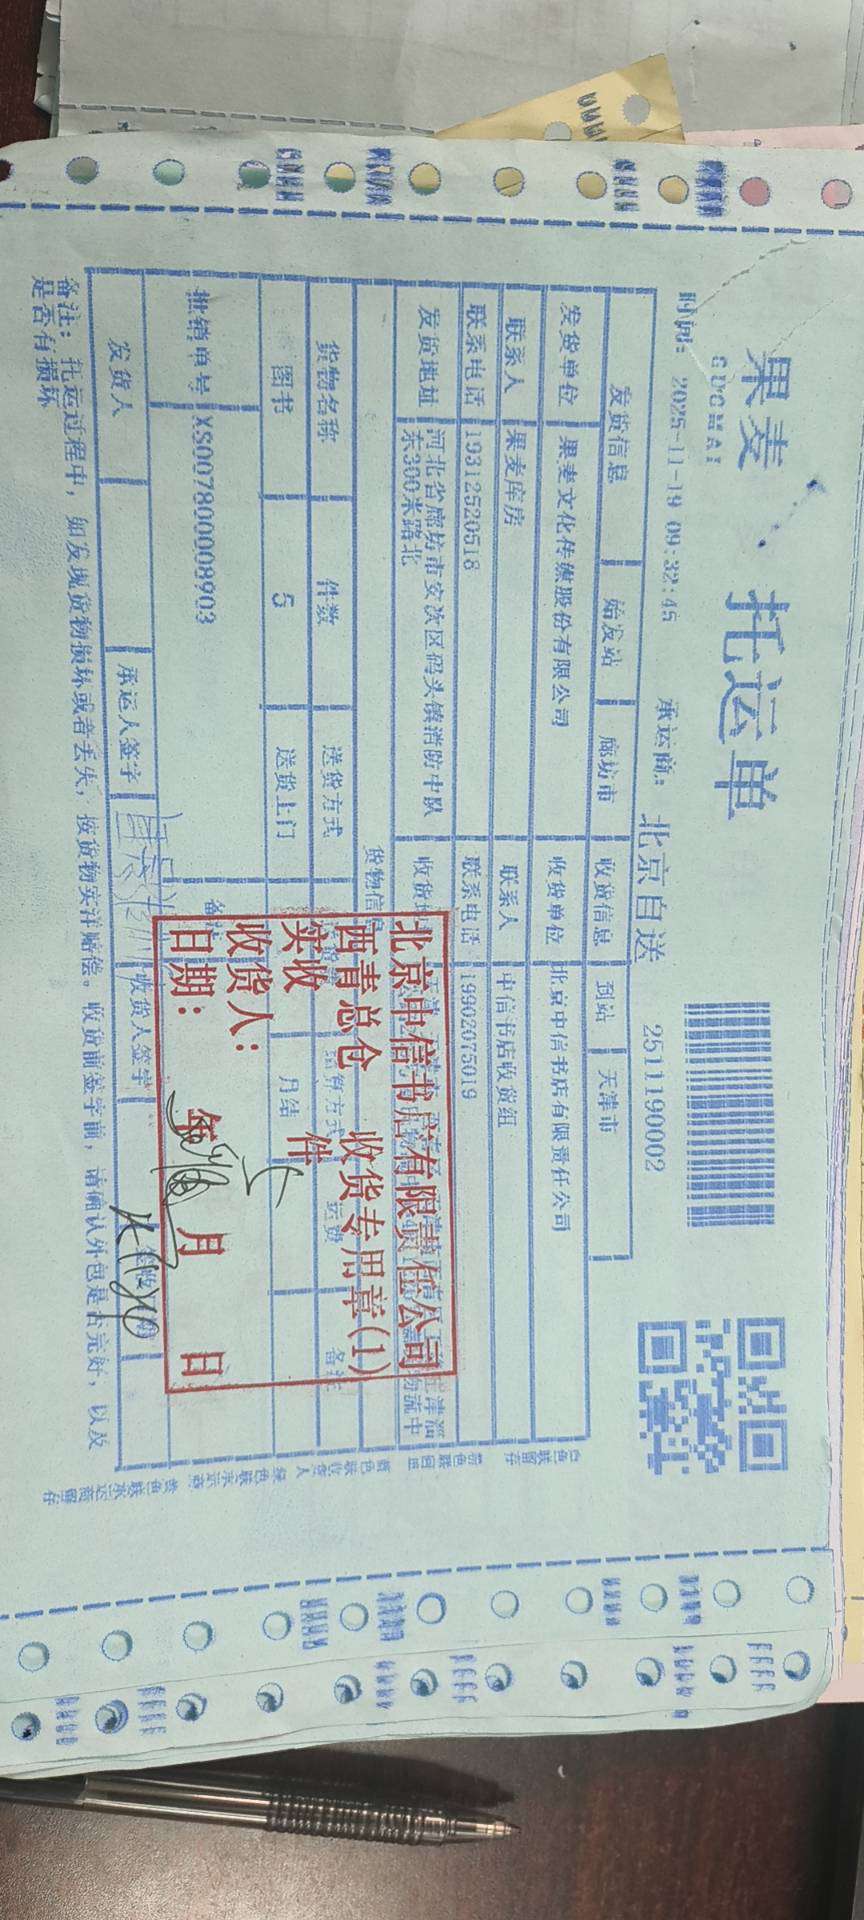 果麦
GUOMAI
托运单
时间：2025-11-19 09:32:45
承运商：北京自送
2511190002
发货信息 始发站 廊坊市 收货信息 到站 天津市
发货单位 果麦文化传媒股份有限公司 收货单位 北京中信书店有限责任公司
联系人 果麦库房 联系人 中信书店收货组
联系电话 19312520518 联系电话 19902075019
发货地址 河北省廊坊市安次区码头镇消防中队
东300米路北
货物信息
货物名称 件数 送货方式 运费 备注
图书 5 送货上门 月结
批销单号 XS007800008903
发货人 承运人签字 收货人签字
备注：托运过程中，如发现货物损坏或者丢失，按货物实洋赔偿。收货前签字前，请确认外包是否完好，以及
是否有损坏
北京中信书店有限责任公司
西青总仓 收货专用章(1)
实收 5 件
收货人：
日期： 年 月 日